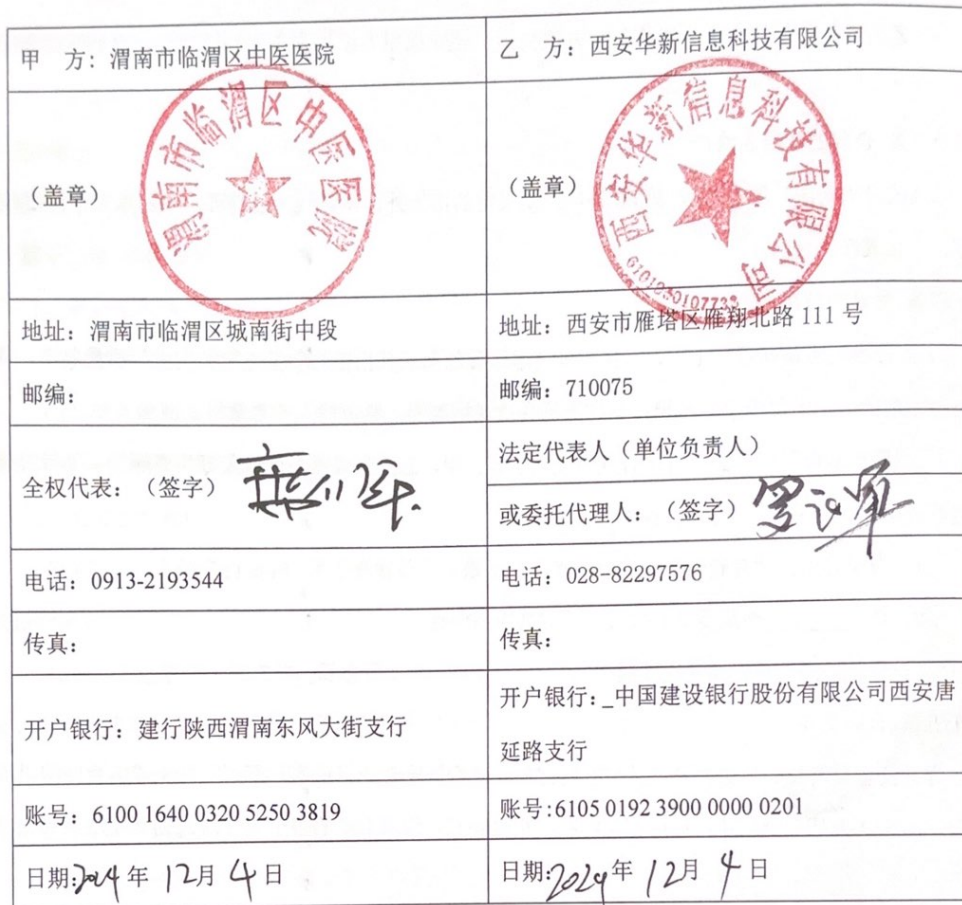 甲 方：渭南市临渭区中医医院
乙 方：西安华新信息科技有限公司
（盖章）
渭南市临渭区中医医院
（盖章）
西安华新信息科技有限公司
地址：渭南市临渭区城南街中段
地址：西安市雁塔区雁翔北路 111 号
邮编：
邮编：710075
全权代表：（签字）
法定代表人（单位负责人）
或委托代理人：（签字）
电话：0913-2193544
电话：028-82297576
传真：
传真：
开户银行：建行陕西渭南东风大街支行
开户银行：_中国建设银行股份有限公司西安唐
延路支行
账号：6100 1640 0320 5250 3819
账号:6105 0192 3900 0000 0201
日期:2024年 12月 4日
日期:2024年 12月 4日